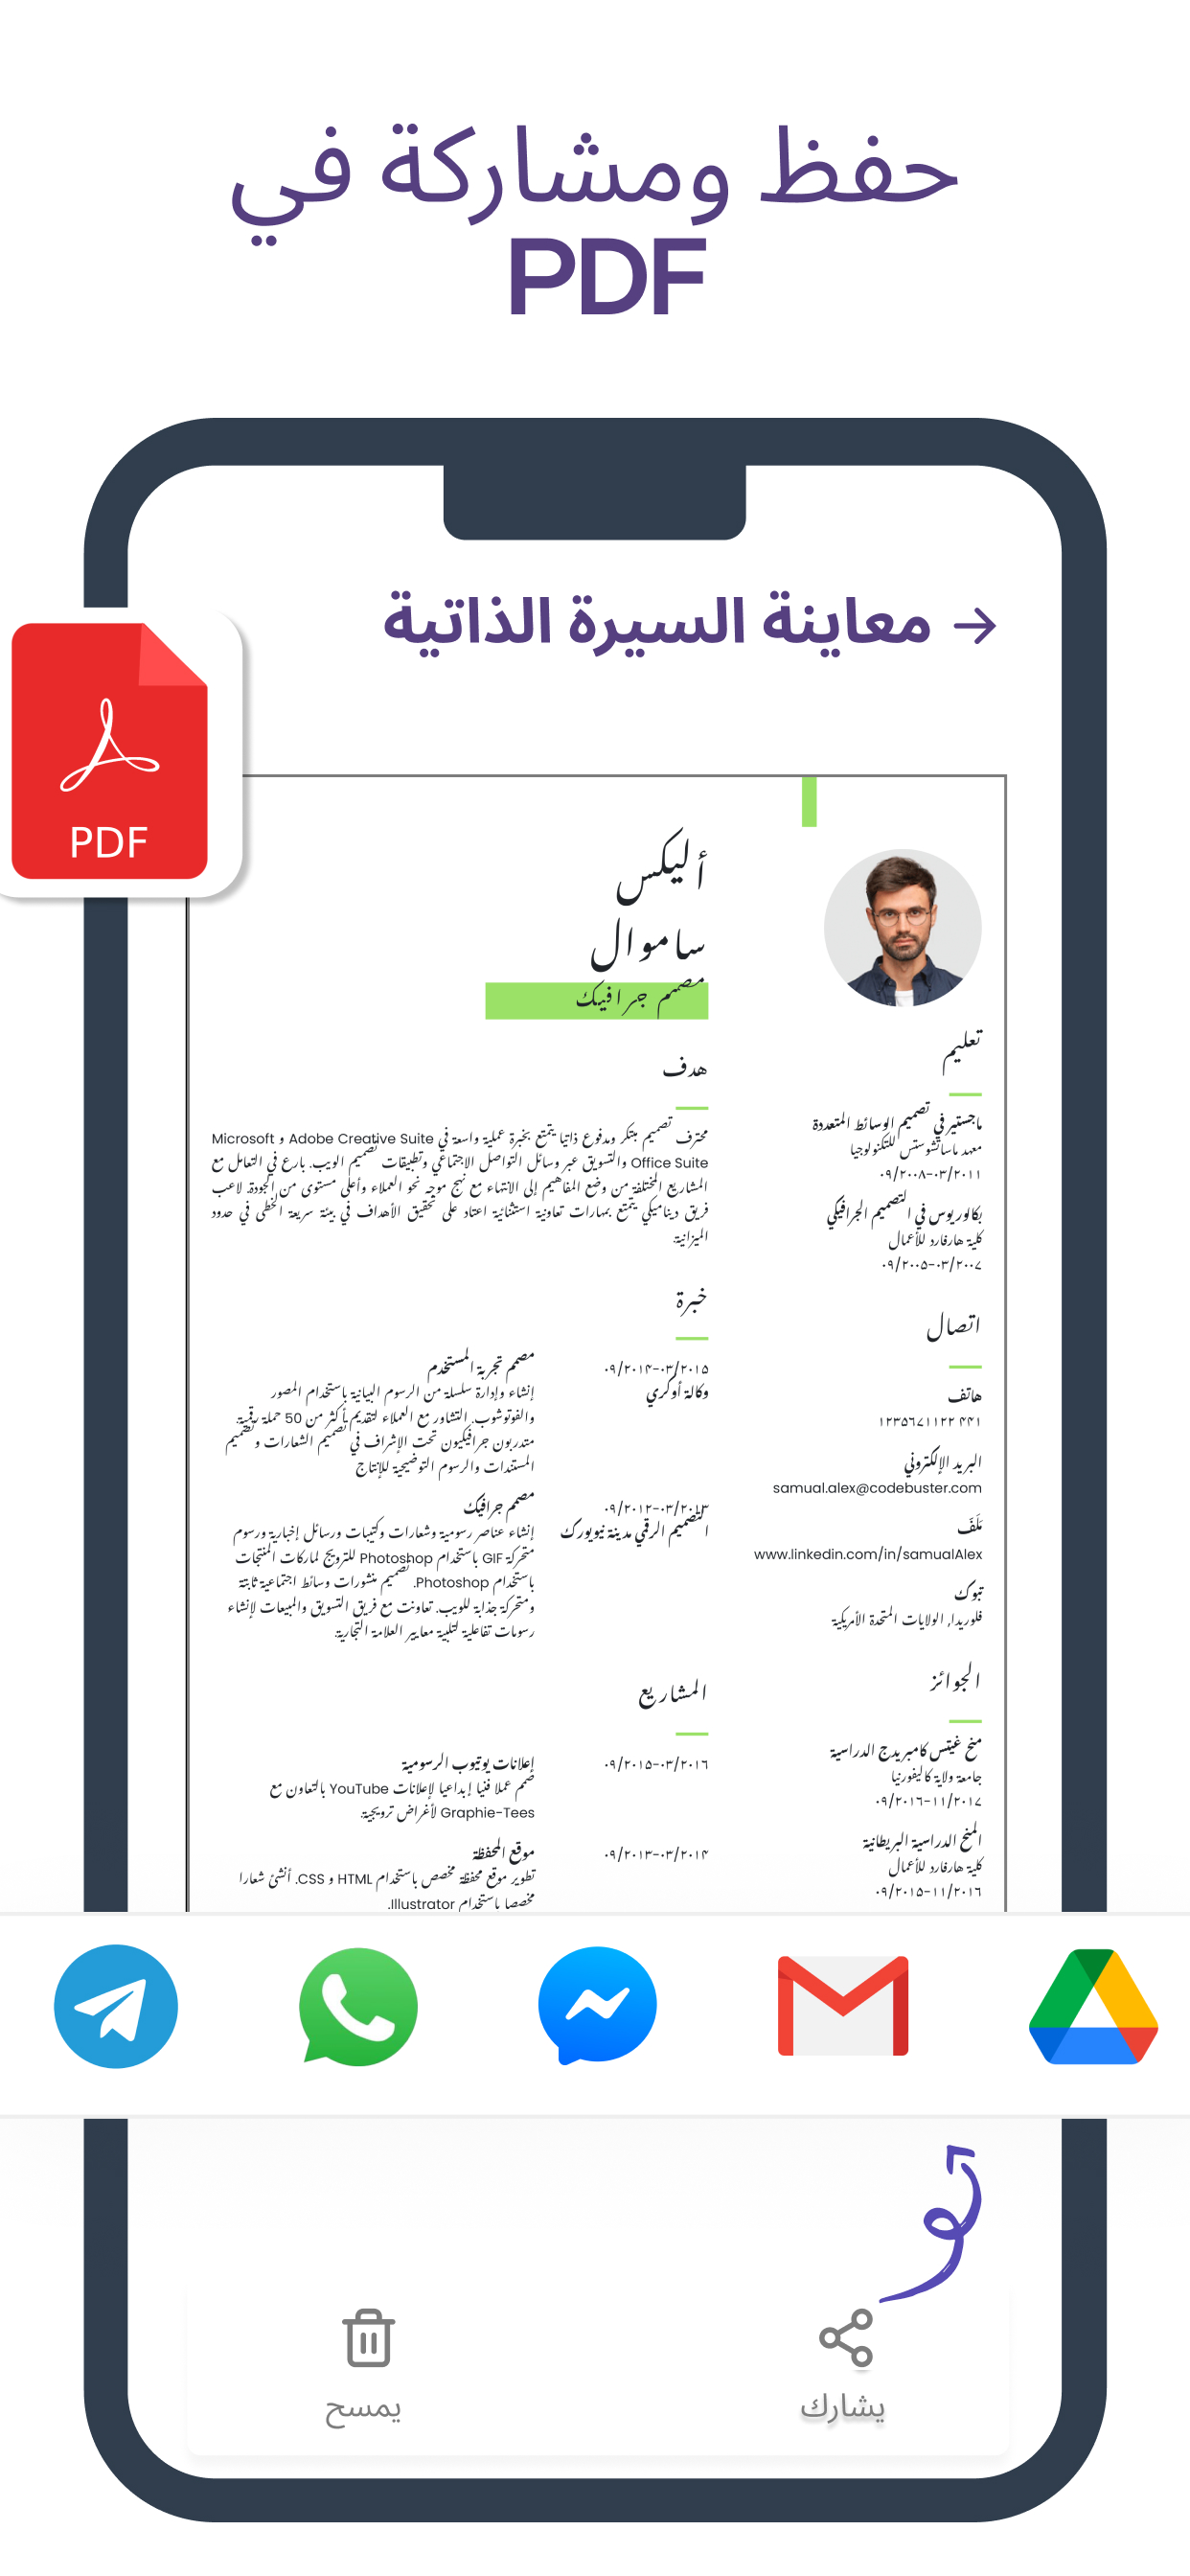 حفظ ومشاركة في
PDF
معاينة السيرة الذاتية
PDF
أليكس
ساموال
مصمم جرافيك
هدف
محترف تصميم مبتكر ومدفوع ذاتيا يتمتع بخبرة عملية واسعة في Adobe Creative Suite و Microsoft
Office Suite والتسويق عبر وسائل التواصل الاجتماعي وتطبيقات تصميم الويب. بارع في التعامل مع
المشاريع المختلفة من وضع المفاهيم إلى الانتهاء مع نهج موجه نحو العملاء وأعلى مستوى من الجودة. لاعب
فريق ديناميكي يتمتع بمهارات تعاونية استثنائية اعتاد على تحقيق الأهداف في بيئة سريعة الخطى في حدود
الميزانية.
خبرة
۰۹/۲۰۱۴-۰۳/۲۰۱۵
وكالة أوكري
مصمم تجربة المستخدم
إنشاء وإدارة سلسلة من الرسوم البيانية باستخدام المصور
والفوتوشوب. التشاور مع العملاء لتقديم أكثر من 50 حملة رقمية.
متدربون جرافيكيون تحت الإشراف في تصميم الشعارات وتصميم
المستندات والرسوم التوضيحية للإنتاج
۰۹/۲۰۱۲-۰۳/۲۰۱۳
التصميم الرقمي مدينة نيويورك
مصمم جرافيك
إنشاء عناصر رسومية وشعارات وكتيبات ورسائل إخبارية ورسوم
متحركة GIF باستخدام Photoshop للترويج لماركات المنتجات
باستخدام Photoshop. تصميم منشورات وسائط اجتماعية ثابتة
ومتحركة جذابة للويب. تعاونت مع فريق التسويق والمبيعات لإنشاء
رسومات تفاعلية لتلبية معايير العلامة التجارية.
المشاريع
۰۹/۲۰۱۵-۰۳/۲۰۱۶
إعلانات يوتيوب الرسومية
صمم عملا فنيا إبداعيا لإعلانات YouTube بالتعاون مع
Graphie-Tees لأغراض ترويجية.
۰۹/۲۰۱۳-۰۳/۲۰۱۴
موقع المحفظة
تطوير موقع محفظة مخصص باستخدام HTML و CSS. أنشئ شعارا
مخصصا باستخدام Illustrator.
تعليم
ماجستير في تصميم الوسائط المتعددة
معهد ماساتشوستس للتكنولوجيا
۰۹/۲۰۰۸-۰۳/۲۰۱۱
بكالوريوس في التصميم الجرافيكي
كلية هارفارد للأعمال
۰۹/۲۰۰۵-۰۳/۲۰۰۷
اتصال
هاتف
۱۲۳۵۶۷۱۱۲۲ ۴۴۱
البريد الإلكتروني
samual.alex@codebuster.com
مَلَفّ
www.linkedin.com/in/samualAlex
تبوك
فلوريدا, الولايات المتحدة الأمريكية
الجوائز
منح غيتس كامبريدج الدراسية
جامعة ولاية كاليفورنيا
۰۹/۲۰۱۶-۱۱/۲۰۱۷
المنح الدراسية البريطانية
كلية هارفارد للأعمال
۰۹/۲۰۱۵-۱۱/۲۰۱۶
يشارك
يمسح